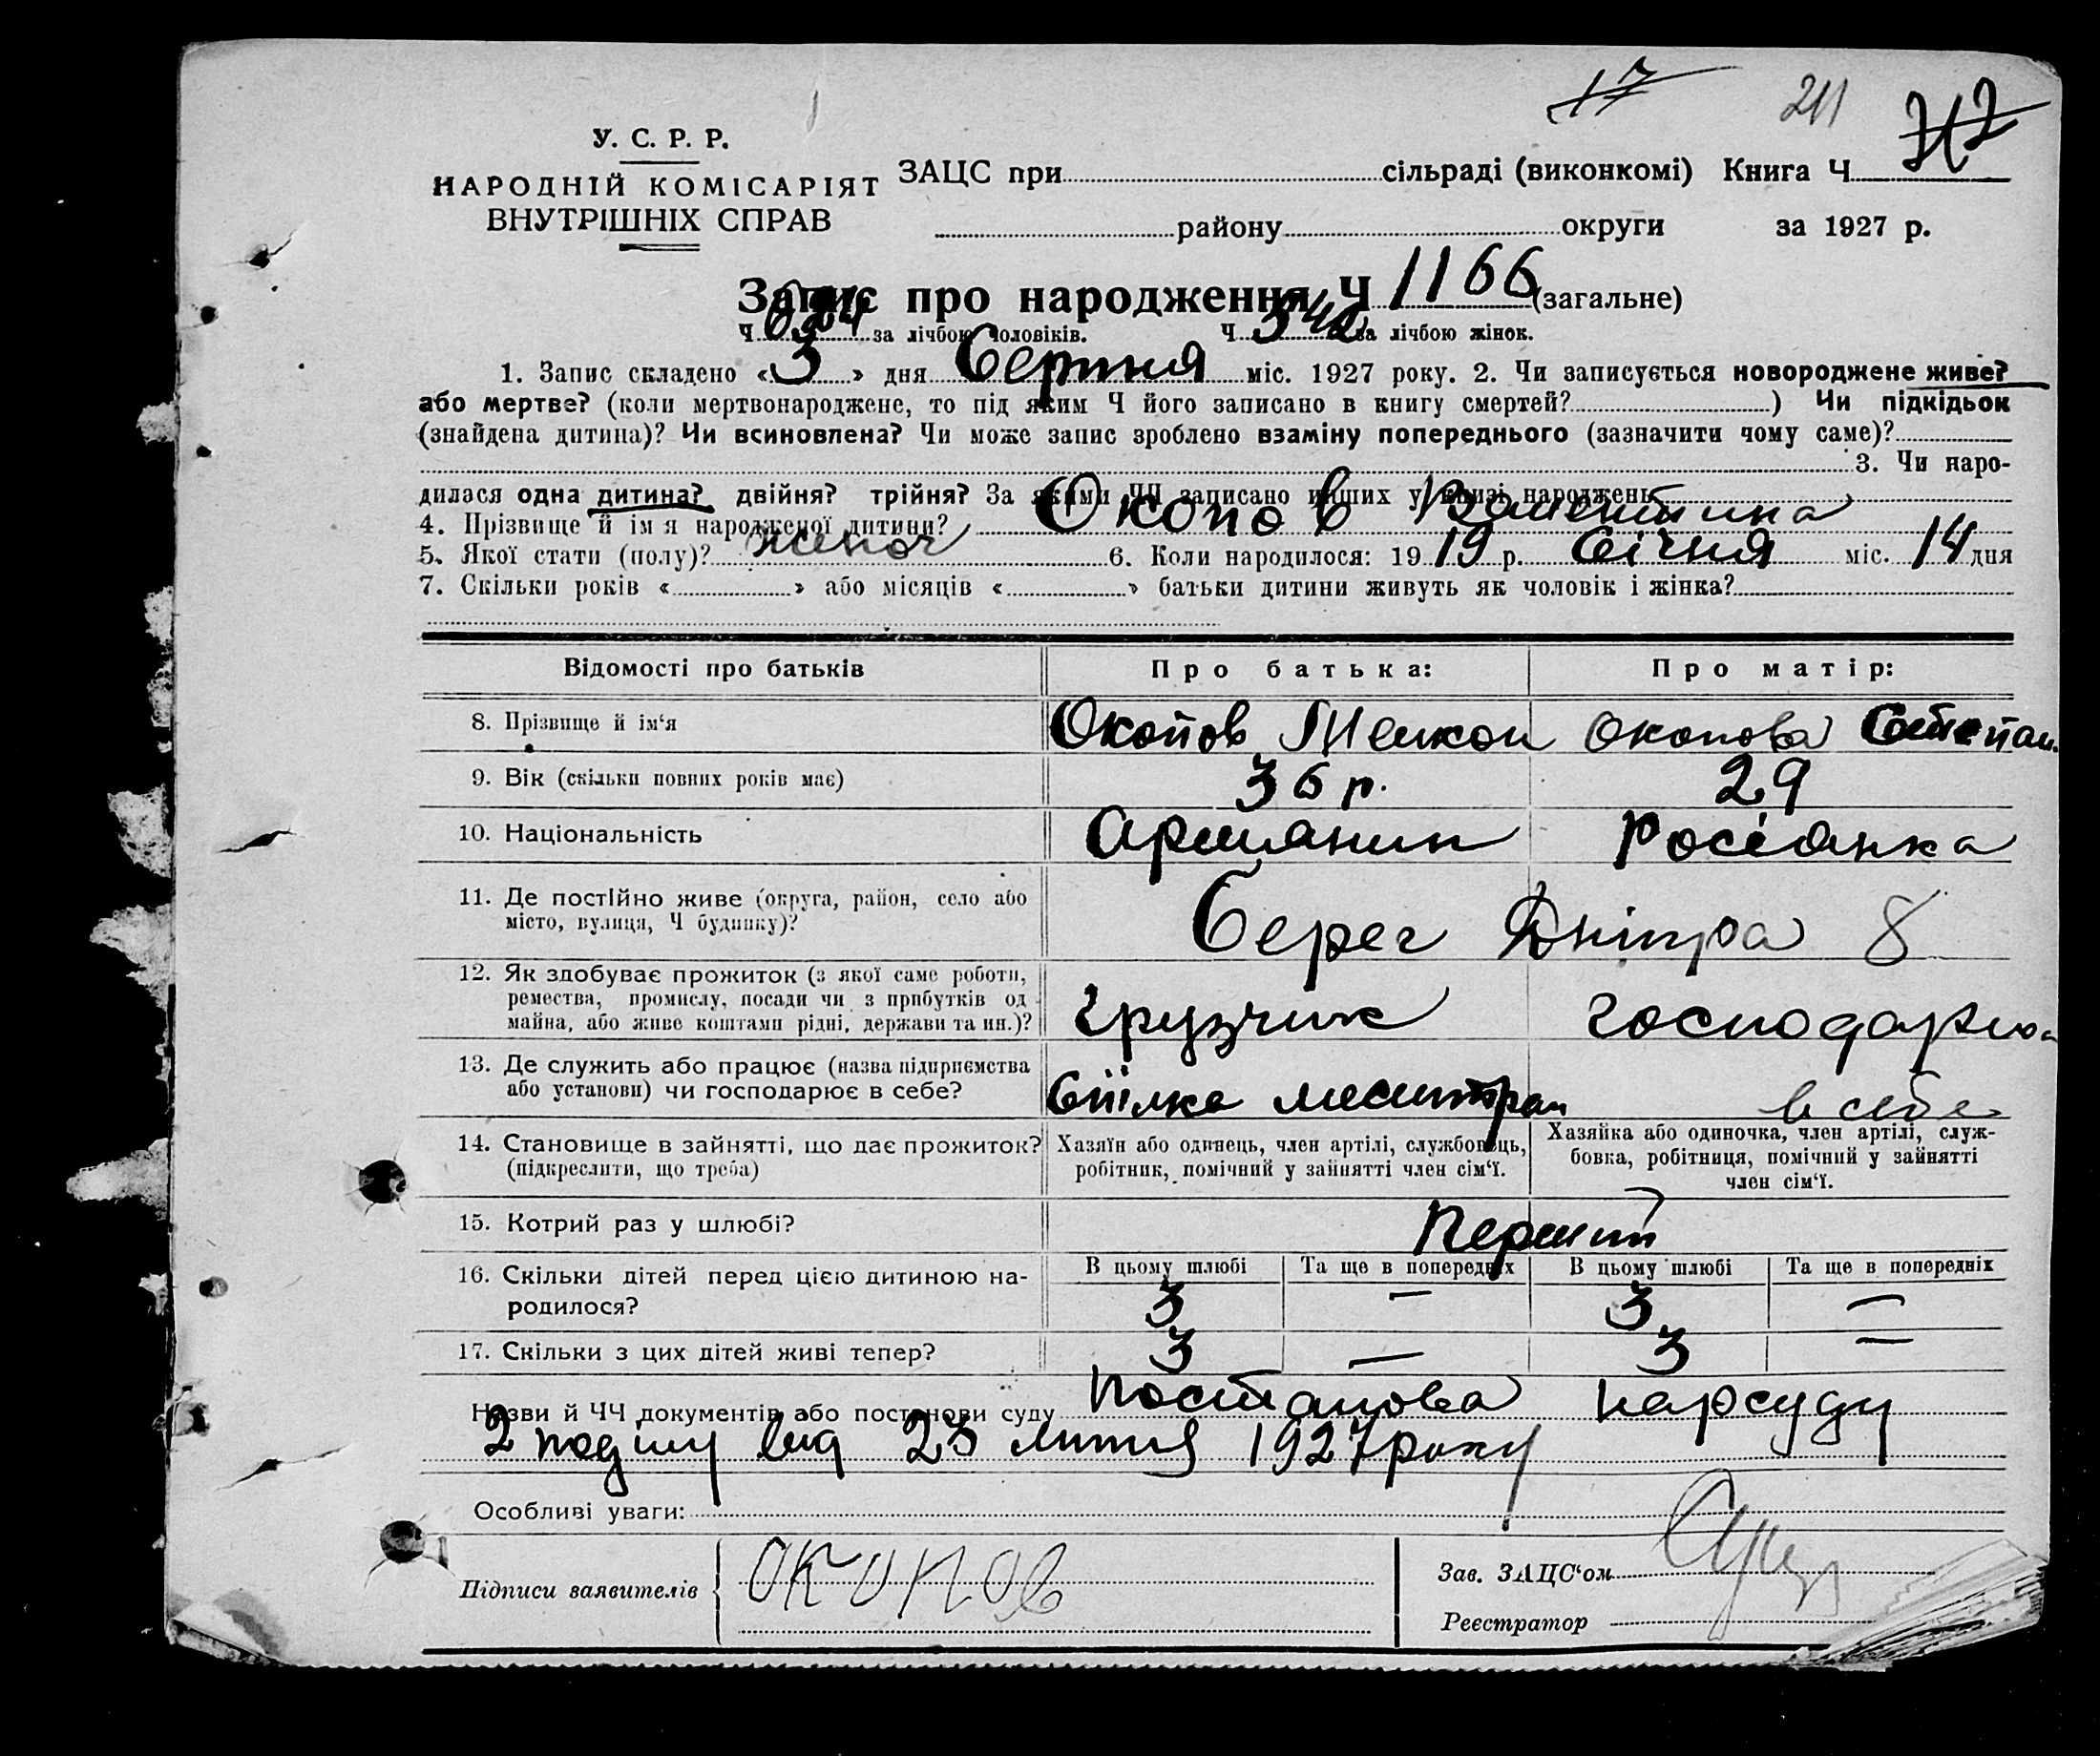 17 211
У. С. Р. Р.
НАРОДНІЙ КОМІСАРІЯТ
ВНУТРІШНІХ СПРАВ
ЗАЦС при сільраді (виконкомі) Книга Ч
району округи за 1927 р.
Запис про народження Ч 1166 (загальне)
Ч за лічбою чоловіків. Ч 542 за лічбою жінок.
1. Запис складено «3» дня Серпня міс. 1927 року. 2. Чи записується новороджене живе?
або мертве? (коли мертвонароджене, то під яким Ч його записано в книгу смертей?) Чи підкідьок
(знайдена дитина)? Чи всиновлена? Чи може запис зроблено взаміну попереднього (зазначити чому саме)?
3. Чи наро-
дилася одна дитина? двійня? трійня? За якими ЧЧ записано инших у книзі народжень
4. Прізвище й ім'я народженої дитини? Окопов Валентина
5. Якої стати (полу)? жіноч 6. Коли народилося: 1919 р. Січня міс. 14 дня
7. Скільки років « » або місяців « » батьки дитини живуть як чоловік і жінка?
Відомості про батьків Про батька: Про матір:
8. Прізвище й ім'я Окопов Окопова Степан.
9. Вік (скільки повних років має) 36 р. 29
10. Національність Армянин Росіянка
11. Де постійно живе (округа, район, село або
місто, вулиця, Ч будинку)? Берег Дніпра 8
12. Як здобуває прожиток (з якої саме роботи,
ремества, промислу, посади чи з прибутків од
майна, або живе коштами рідні, держави та ин.)? грузчик господарює
13. Де служить або працює (назва підприємства
або установи) чи господарює в себе? Спілка в себе
14. Становище в зайнятті, що дає прожиток?
(підкреслити, що треба)
Хазяїн або одинець, член артілі, службовець,
робітник, помічний у зайнятті член сім'ї.
Хазяйка або одиночка, член артілі, служ-
бовка, робітниця, помічний у зайнятті
член сім'ї.
15. Котрий раз у шлюбі? Перший
16. Скільки дітей перед цією дитиною на-
родилося?
В цьому шлюбі Та ще в попередніх В цьому шлюбі Та ще в попередніх
3 — 3 —
17. Скільки з цих дітей живі тепер? 3 — 3 —
Назви й ЧЧ документів або постанови суду Постанова нарсуду
2 поділу від 23 липня 1927 року
Особливі уваги:
Підписи заявителів Окопов
Зав. ЗАЦС'ом
Реєстратор